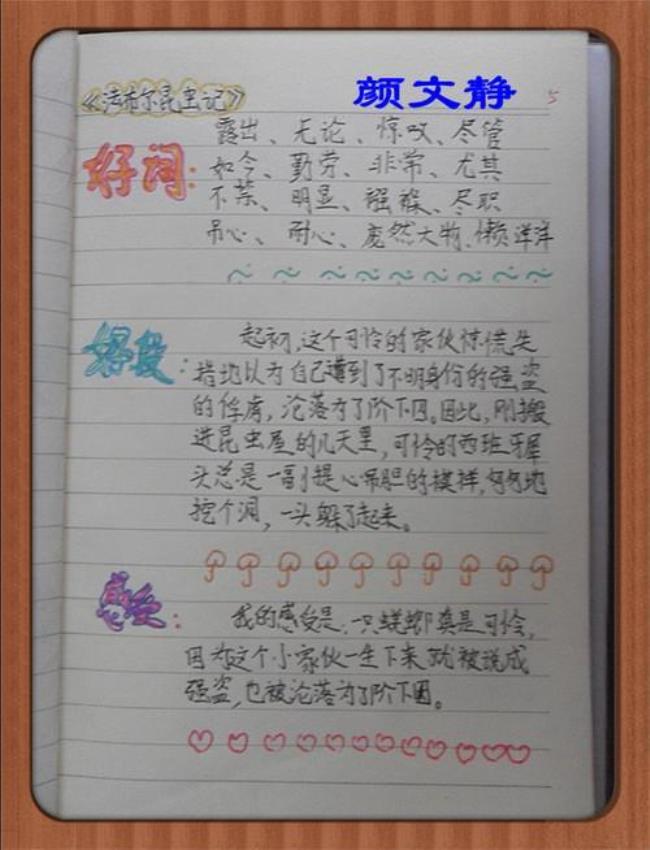 《法布尔昆虫记》
颜文静
5
好词:
露出、无论、惊叹、尽管
如今、勤劳、非常、尤其
不禁、明显、襁褓、尽职
吊心、耐心、庞然大物、懒洋洋
好段:
起初,这个可怜的家伙惊慌失
措地以为自己遭到了不明身份的强盗
的俘虏,沦落为了阶下囚。因此,刚搬
进昆虫屋的几天里,可怜的西班牙犀
头总是一副提心吊胆的模样,匆匆地
挖个洞,一头躲了起来。
感受:
我的感受是:一只蜣螂真是可怜,
因为这个小家伙一生下来就被说成
强盗,也被沦落为了阶下囚。